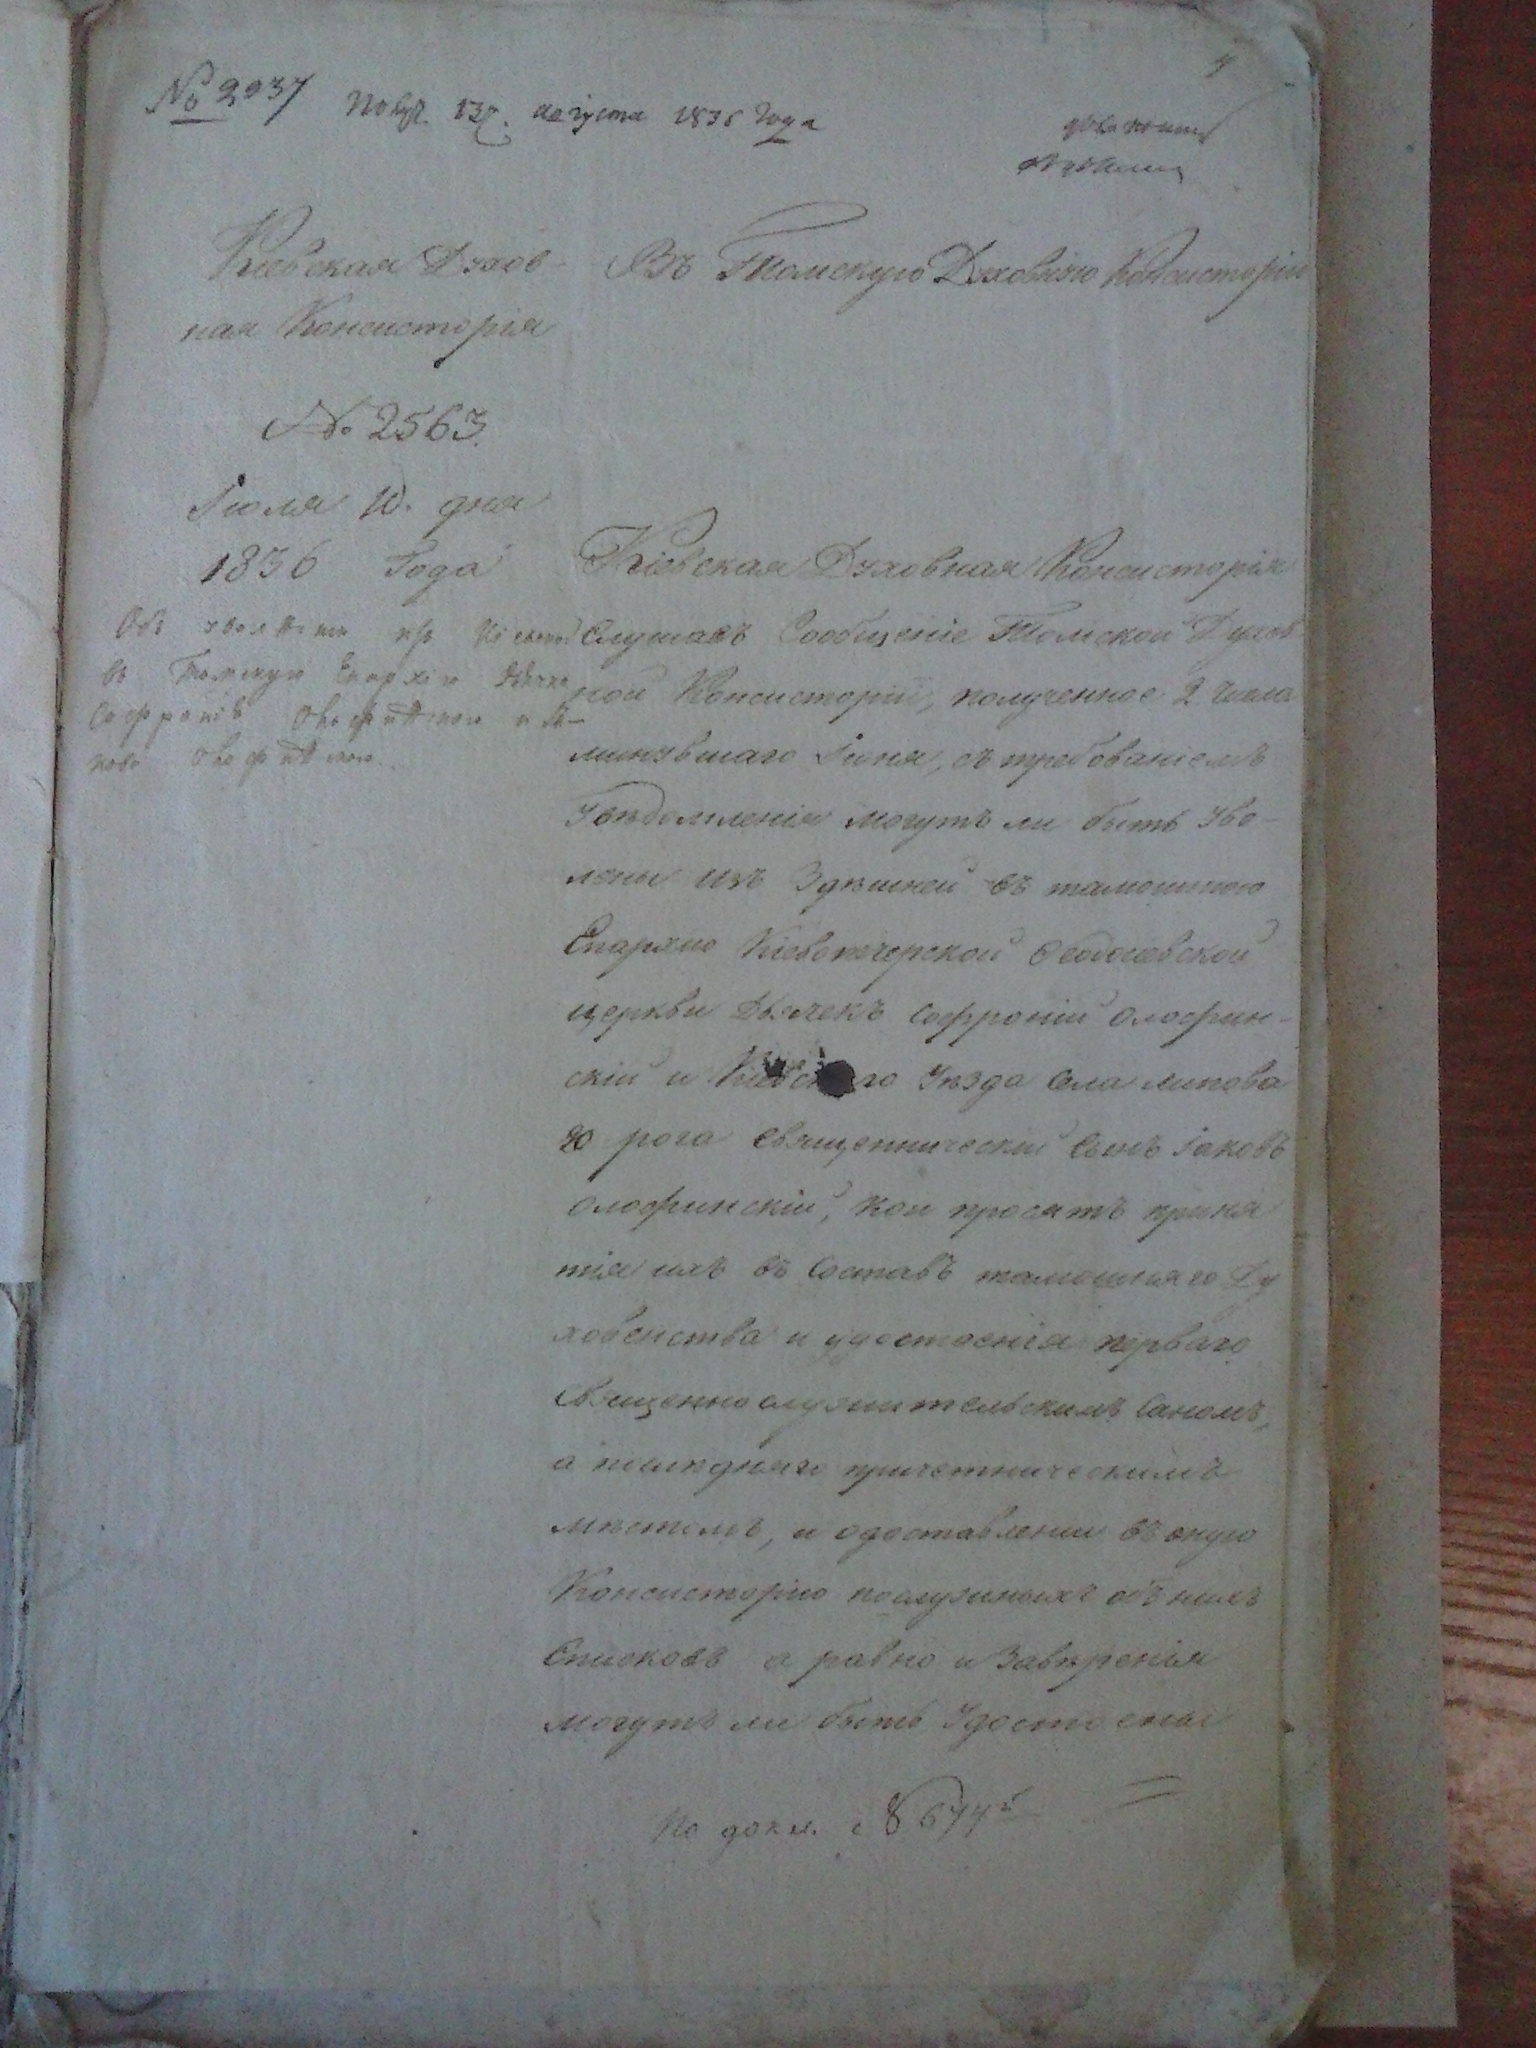 № 2037 Получ. 13. августа 1836 года
Кіевская Духов-
ная Консисторія
№ 2563.
Іюля 10. дня
1836 Года
Въ Томскую Духовную Консисторію
въ Томскую Епархію
Кіевская Духовная Консисторія
Слушавъ Сообщеніе Томской Духов
ной Консисторіи, полученное 2 числа
минувшаго Іюня, съ требованіемъ
Увѣдомленія могутъ ли быть Уво-
лены изъ Здѣшней въ тамошнюю
Епархію Кіевопечерской Феодосіевской
церкви Дьячекъ Софроній Олофин-
скій и Кіевскаго Уѣзда Села Липова
го рога Священническій Сынъ Іаковъ
Олофинскій, кои просятъ приня
тія ихъ въ Составъ тамошняго Ду
ховенства и удостоенія перваго
Священнослужительскимъ Саномъ,
а послѣдняго причетническимъ
мѣстомъ, и о доставленіи въ оную
Консисторію послужныхъ объ нихъ
Списковъ а равно и Завѣренія
могутъ ли быть Удостоены
По докл.